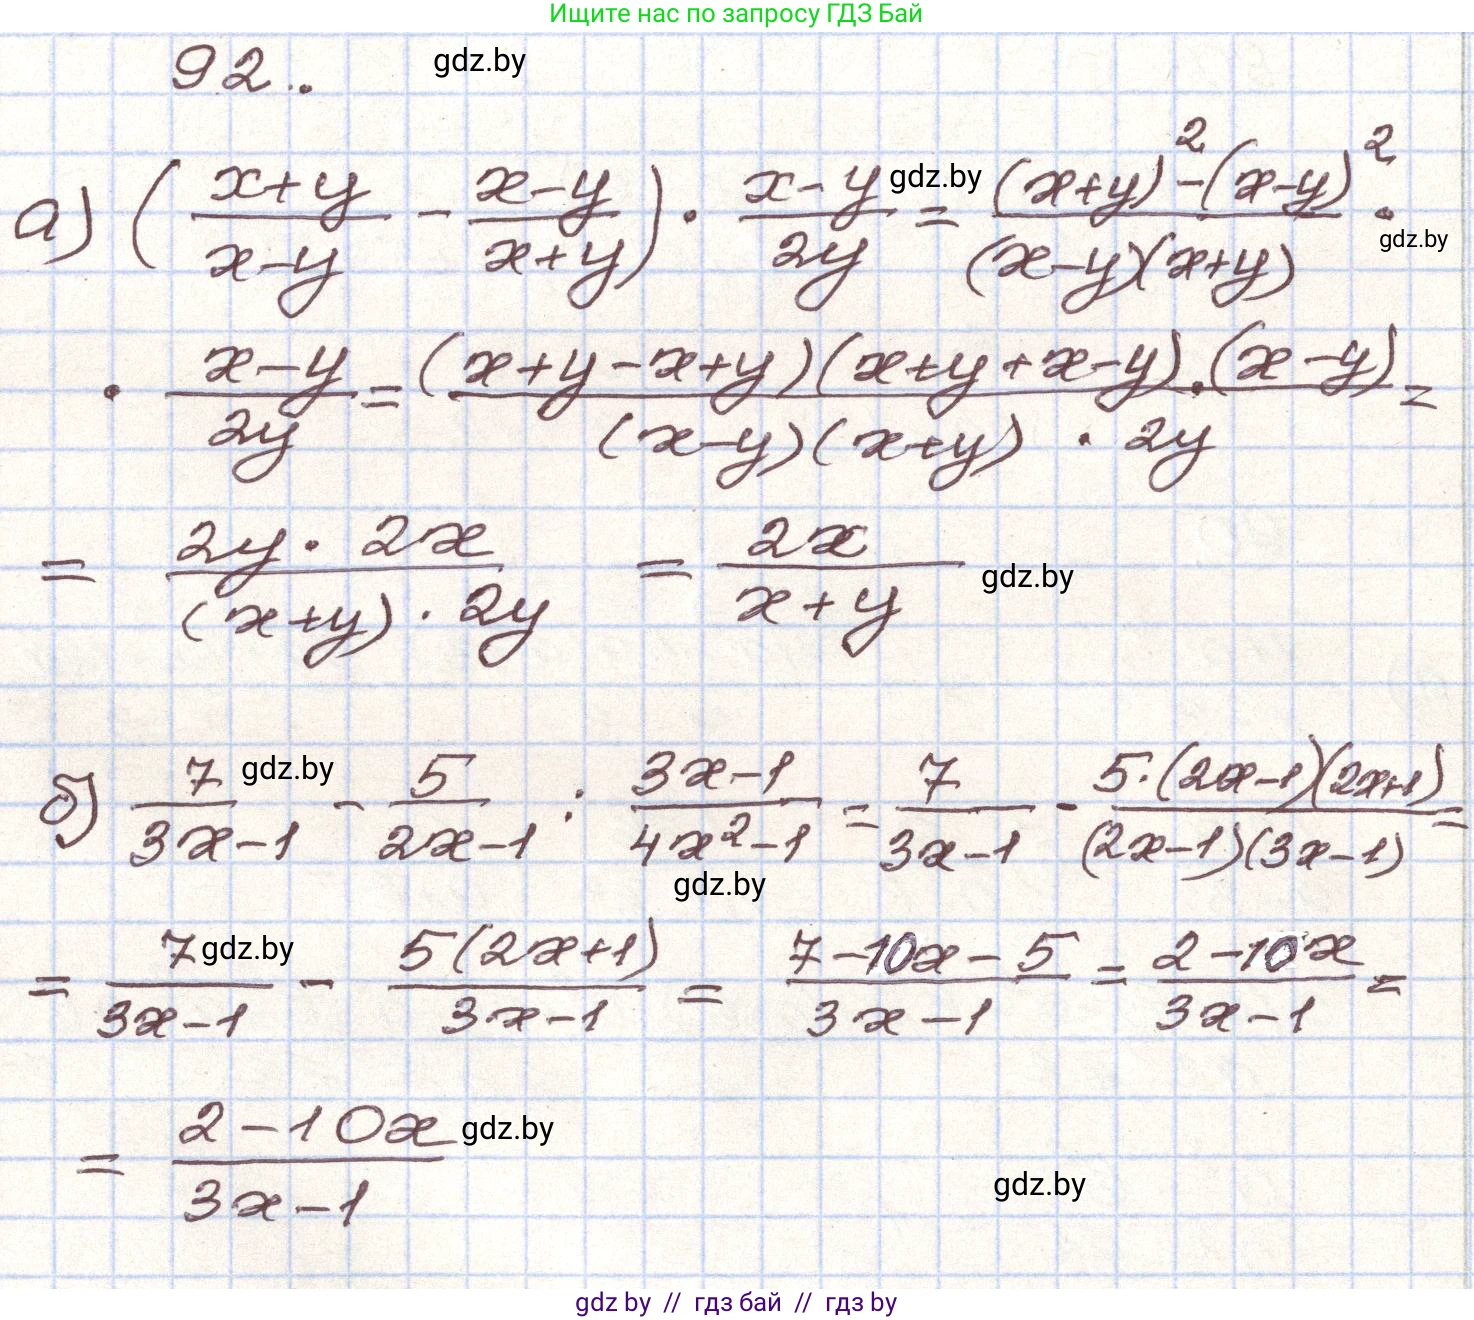 Ищите нас по запросу ГДЗ Бай
92.. gdz.by
а) ( (x+y)/(x-y) - (x-y)/(x+y) ) · (x-y)/(2y) gdz.by = ((x+y)² - (x-y)²)/((x-y)(x+y)) · gdz.by
· (x-y)/(2y) = ((x+y-x+y)(x+y+x-y)·(x-y))/((x-y)(x+y)·2y) =
= (2y·2x)/((x+y)·2y) = (2x)/(x+y) gdz.by
б) 7/(3x-1) gdz.by - 5/(2x-1) : (3x-1)/(4x²-1) = 7/(3x-1) - (5·(2x-1)(2x+1))/((2x-1)(3x-1)) =
gdz.by
= 7/(3x-1) gdz.by - (5(2x+1))/(3x-1) = (7-10x-5)/(3x-1) = (2-10x)/(3x-1) =
= (2-10x)/(3x-1) gdz.by
gdz.by
gdz by // гдз бай // гдз by